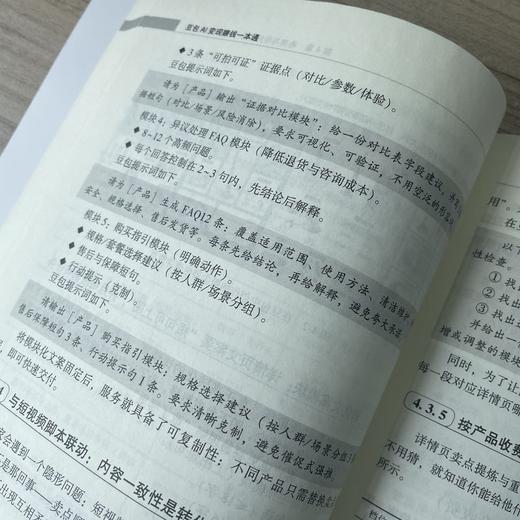 豆包 AI 变现赚钱一本通
◆ 3 条“可拍可证”证据点（对比/参数/体验）。
豆包提示词如下。
请为［产品］输出“证据对比模块”：给一份对比表字段建议，并
据短句（对比/场景/风险消除），要求可视化、可验证，不用空泛的形容
模块 4：异议处理 FAQ 模块（降低退货与咨询成本）。
◆ 8～12 个高频问题。
◆ 每个回答控制在 2～3 句内，先结论后解释。
豆包提示词如下。
请为［产品］生成 FAQ12 条：覆盖适用范围、使用方法、清洁维护
安全、规格选择、售后发货等。每条先给结论，再给解释，避免夸大承诺
模块 5：购买指引模块（明确动作）。
◆ 规格/套餐选择建议（按人群/场景分组）。
◆ 售后与保障短句。
◆ 行动提示（克制）。
豆包提示词如下。
请输出［产品］购买指引模块：规格选择建议（按人群/场景分组
售后保障短句 3 条、行动提示 1 条。要求清晰克制，避免催促式强推
将模块化文案固定后，服务就具备了可复制性：不同产品只需替换
，即可快速交付。
与短视频脚本联动：内容一致性是转化
会遇到一个隐形问题：短视
是那回事——卖点顺
出现互相不
用”，
在
性检查。
① 找出
② 找出
③ 找出
并给出一
增或调整的模块
同时，为了让
每一段对应详情页哪
4.3.5 按产品收费
详情页卖点提炼与重
不用猜，就知道你能给他
所示。